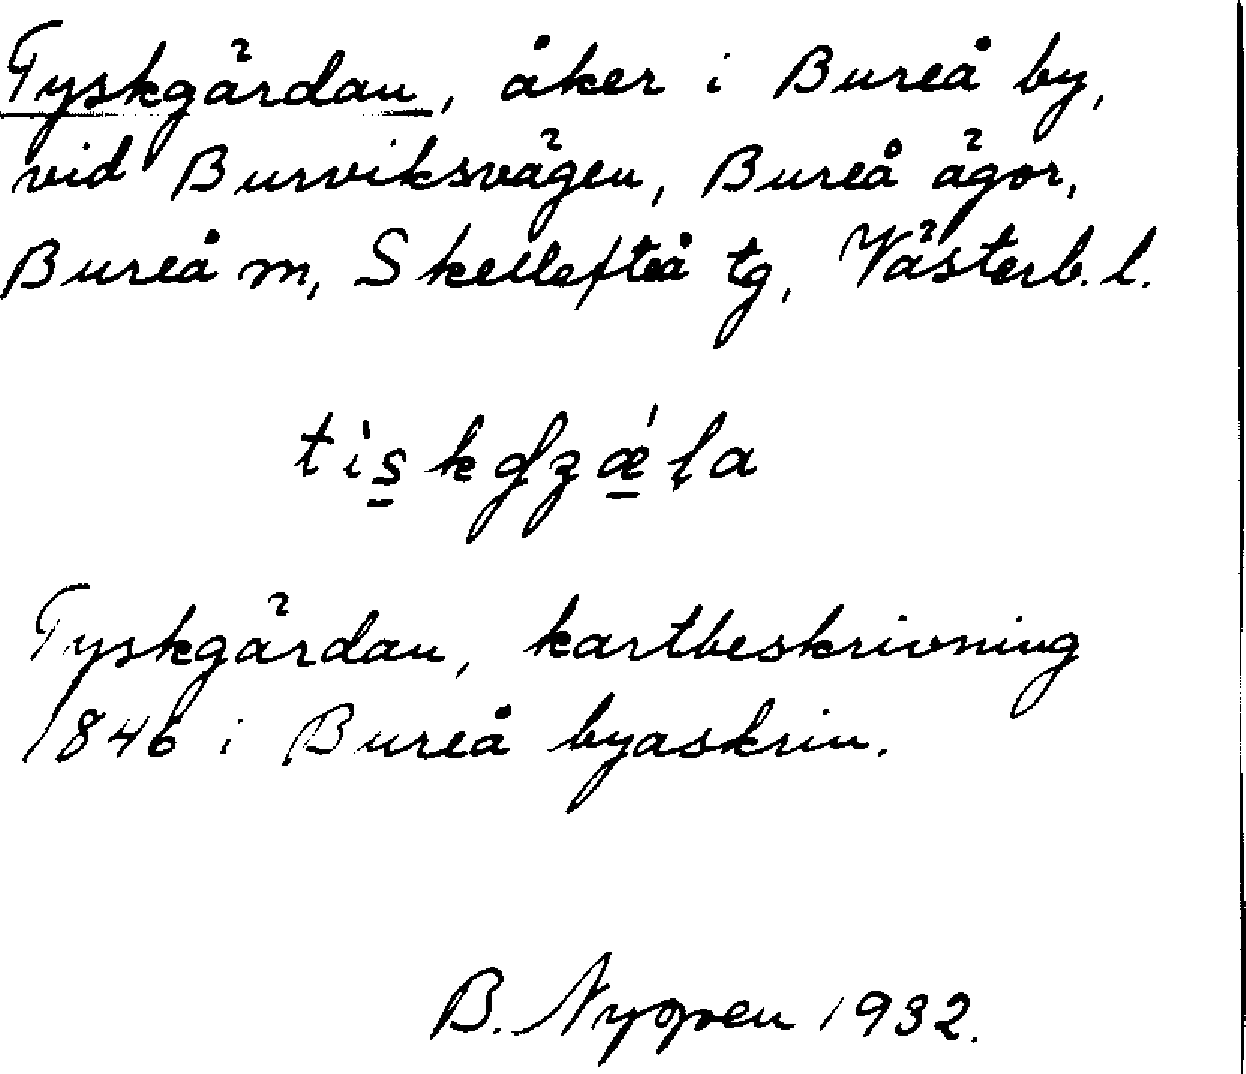 Tyskgärdan, åker i Bureå by,
vid Burviksvägen, Bureå ägor,
Bureå m, Skellefteå tg, Västerb. l.
Tyskgärdan, kartbeskrivning
1846 i Bureå byaskrin.
B. Nygren 1932.